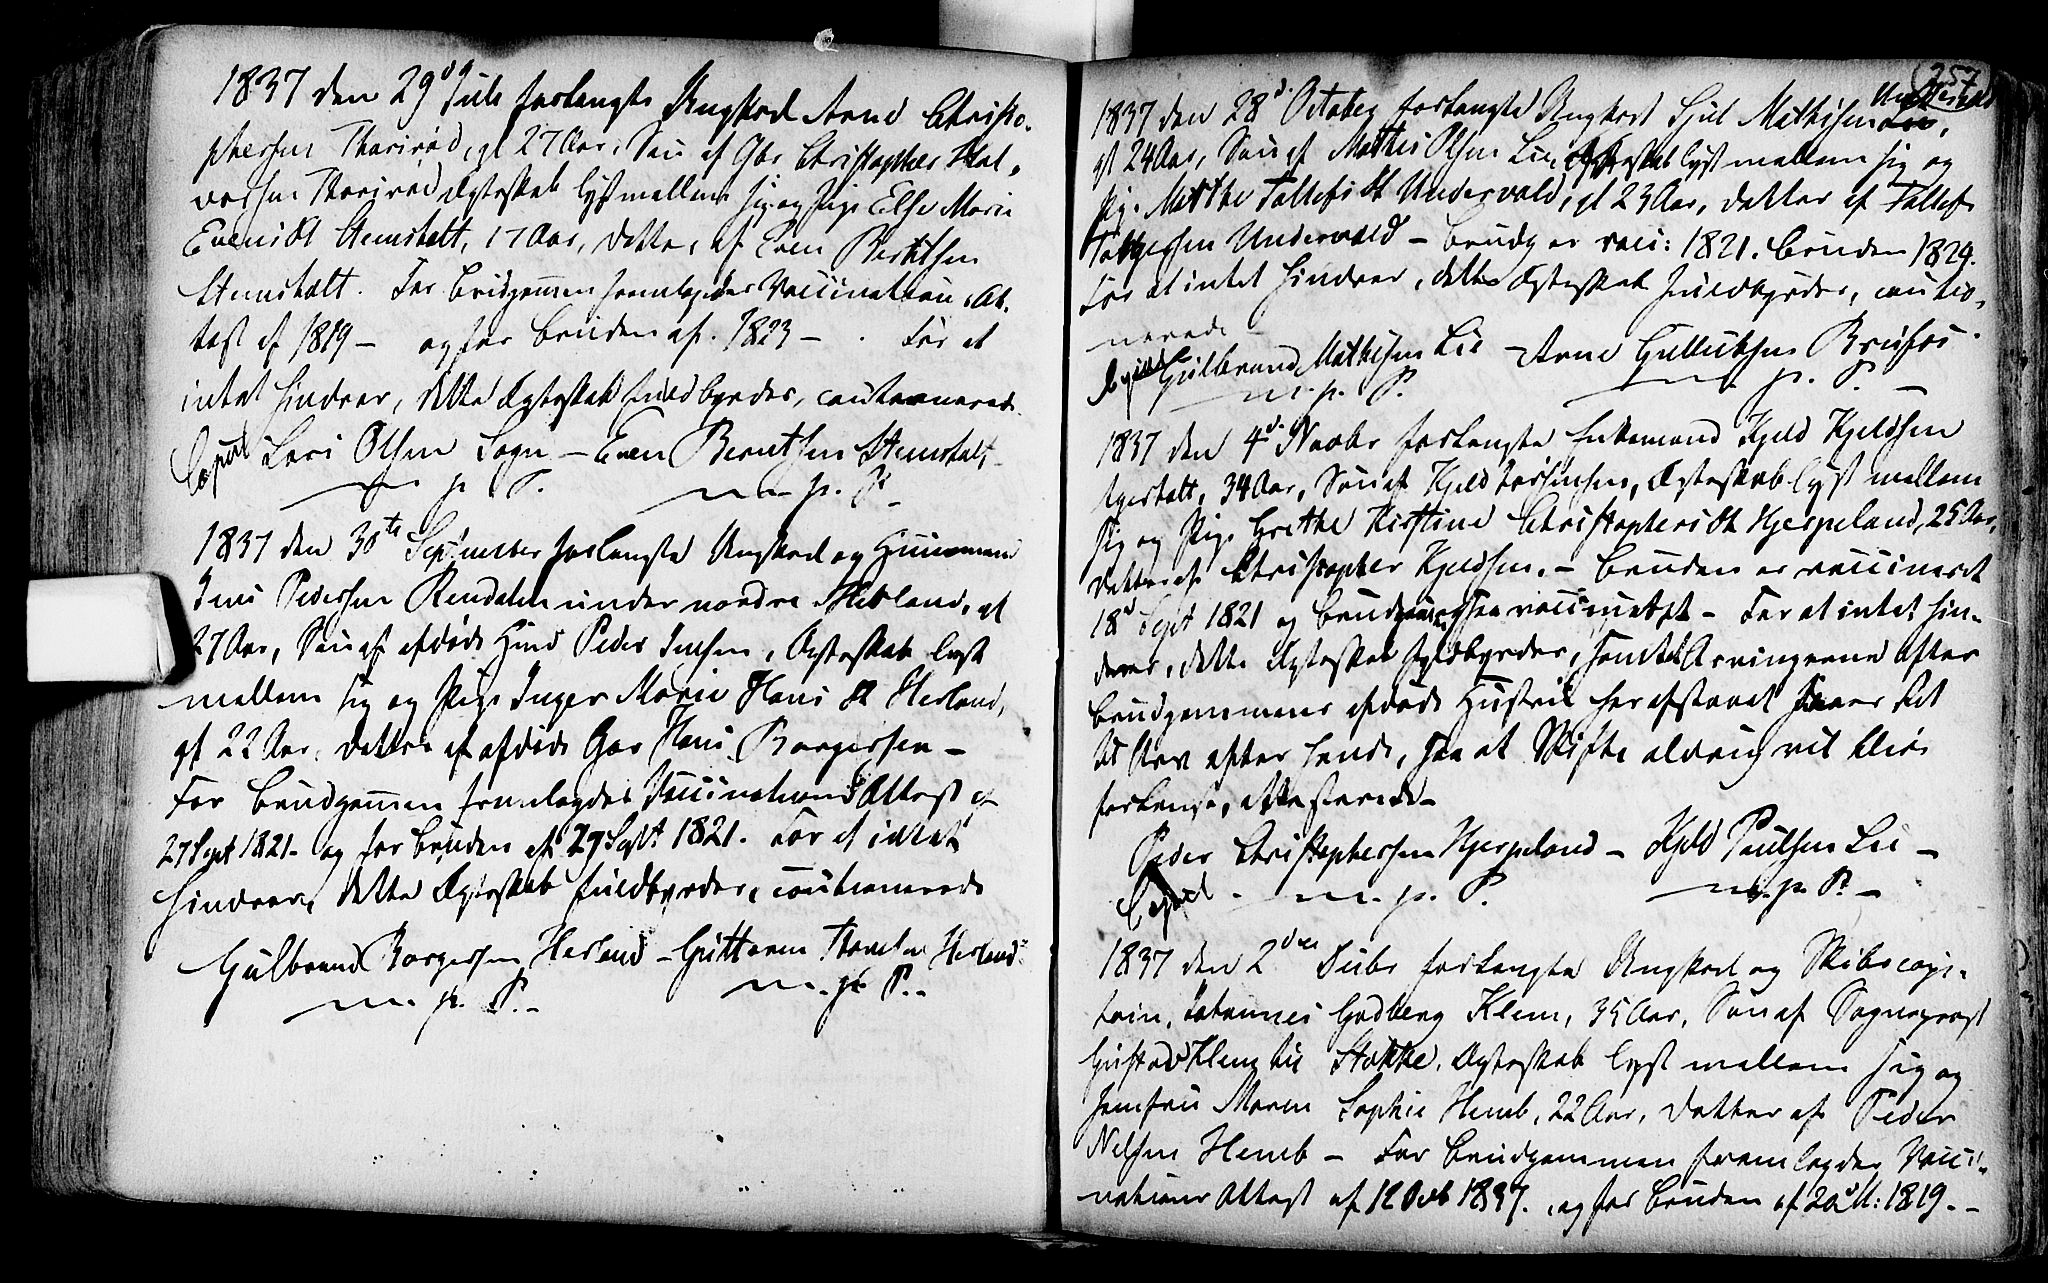 1837 den 29d Juli forlangte Ungkarl Arne Christo-
phersen Thorirød, gl 27 Aar, Søn af Gbr Christopher Hal-
vorsen Thorirød Ægteskab lyst mellem sig og Pige Else Marie
Evensdt Stemstalt, 17 Aar, Datter af Even Berntsen
Stemstalt. For Brudgommen fremlagdes Vaccinations At-
test af 1819 — og for Bruden af 1823 — . For at
intet hindrer, dette Ægteskab fuldbyrdes, cautionerede
Copul Lars Olsen Sogn — Even Berntsen Stemstalt
m. p. P. m. p. P.
1837 den 30te September forlangte Ungkarl og Huusmand
Jens Pedersen Rendalen under nordre Herland, gl
27 Aar, Søn af afdøde Huusmd Peder Jensen, Ægteskab lyst
mellem sig og Pige Inger Marie Hansdt Herland,
gl 22 Aar, Datter af afdøde Gbr Hans Borgersen —
For Brudgommen fremlagdes Vaccinations Attest af
27 Sept 1821 — og for Bruden af 29 Sept 1821. For at intet
hindrer, dette Ægteskab fuldbyrdes, cautionerede
Gulbrand Borgersen Herland — Guttorm Herland
m. p. P. — m. p. P. —
257
1837 den 28d October forlangte Ungkarl Mathisen Lie,
gl 24 Aar, Søn af Mathis Olsen Lie, Ægteskab lyst mellem sig og
Pig. Mathe Tollefsdt Undervald, gl 23 Aar, Datter af Tollef
Undervald — Brudg er vacc: 1821. Bruden 1829.
For at intet hindrer, dette Ægteskab fuldbyrdes, cautio-
nerede
Copul Gulbrand Mathisen Lie — Arne Gulliksen
m. p. P. m. p. P. —
1837 den 4d Novbr forlangte Enkemand Kjeld Kjeldsen
34 Aar, Søn af Kjeld Ægteskab lyst mellem
sig og Pige Grethe Kirstine Christophersdt Hjerpeland, 25 Aar,
Datter af Christopher Kjeldsen. — Bruden er vaccineret
18d Sept 1821 og Brudgommen vaccineret — For at intet hin-
drer, dette Ægteskab fuldbyrdes, samt at Arvingerne efter
Brudgommens afdøde Hustru har afstaaet
Arv efter hende, saa at Skifte aldrig vil blive
forlangt, attesterede —
Peder Christophersen Hjerpeland — Kjeld Paulsen Lie —
Copul — m. p. P. m. p. P. —
1837 den 2den Decbr forlangte Ungkarl og Skibscapi-
tain, Johannes Gedberg Klem, 35 Aar, Søn af Sogneprest
Gustav Klem til Stokke, Ægteskab lyst mellem sig og
Jomfru Maren Sophie Hemb, 22 Aar, Datter af Peder
Nilsen Hemb — For Brudgommen fremlagdes Vacci-
nations Attest af 12 Octb 1837. og for Bruden af 1819. —